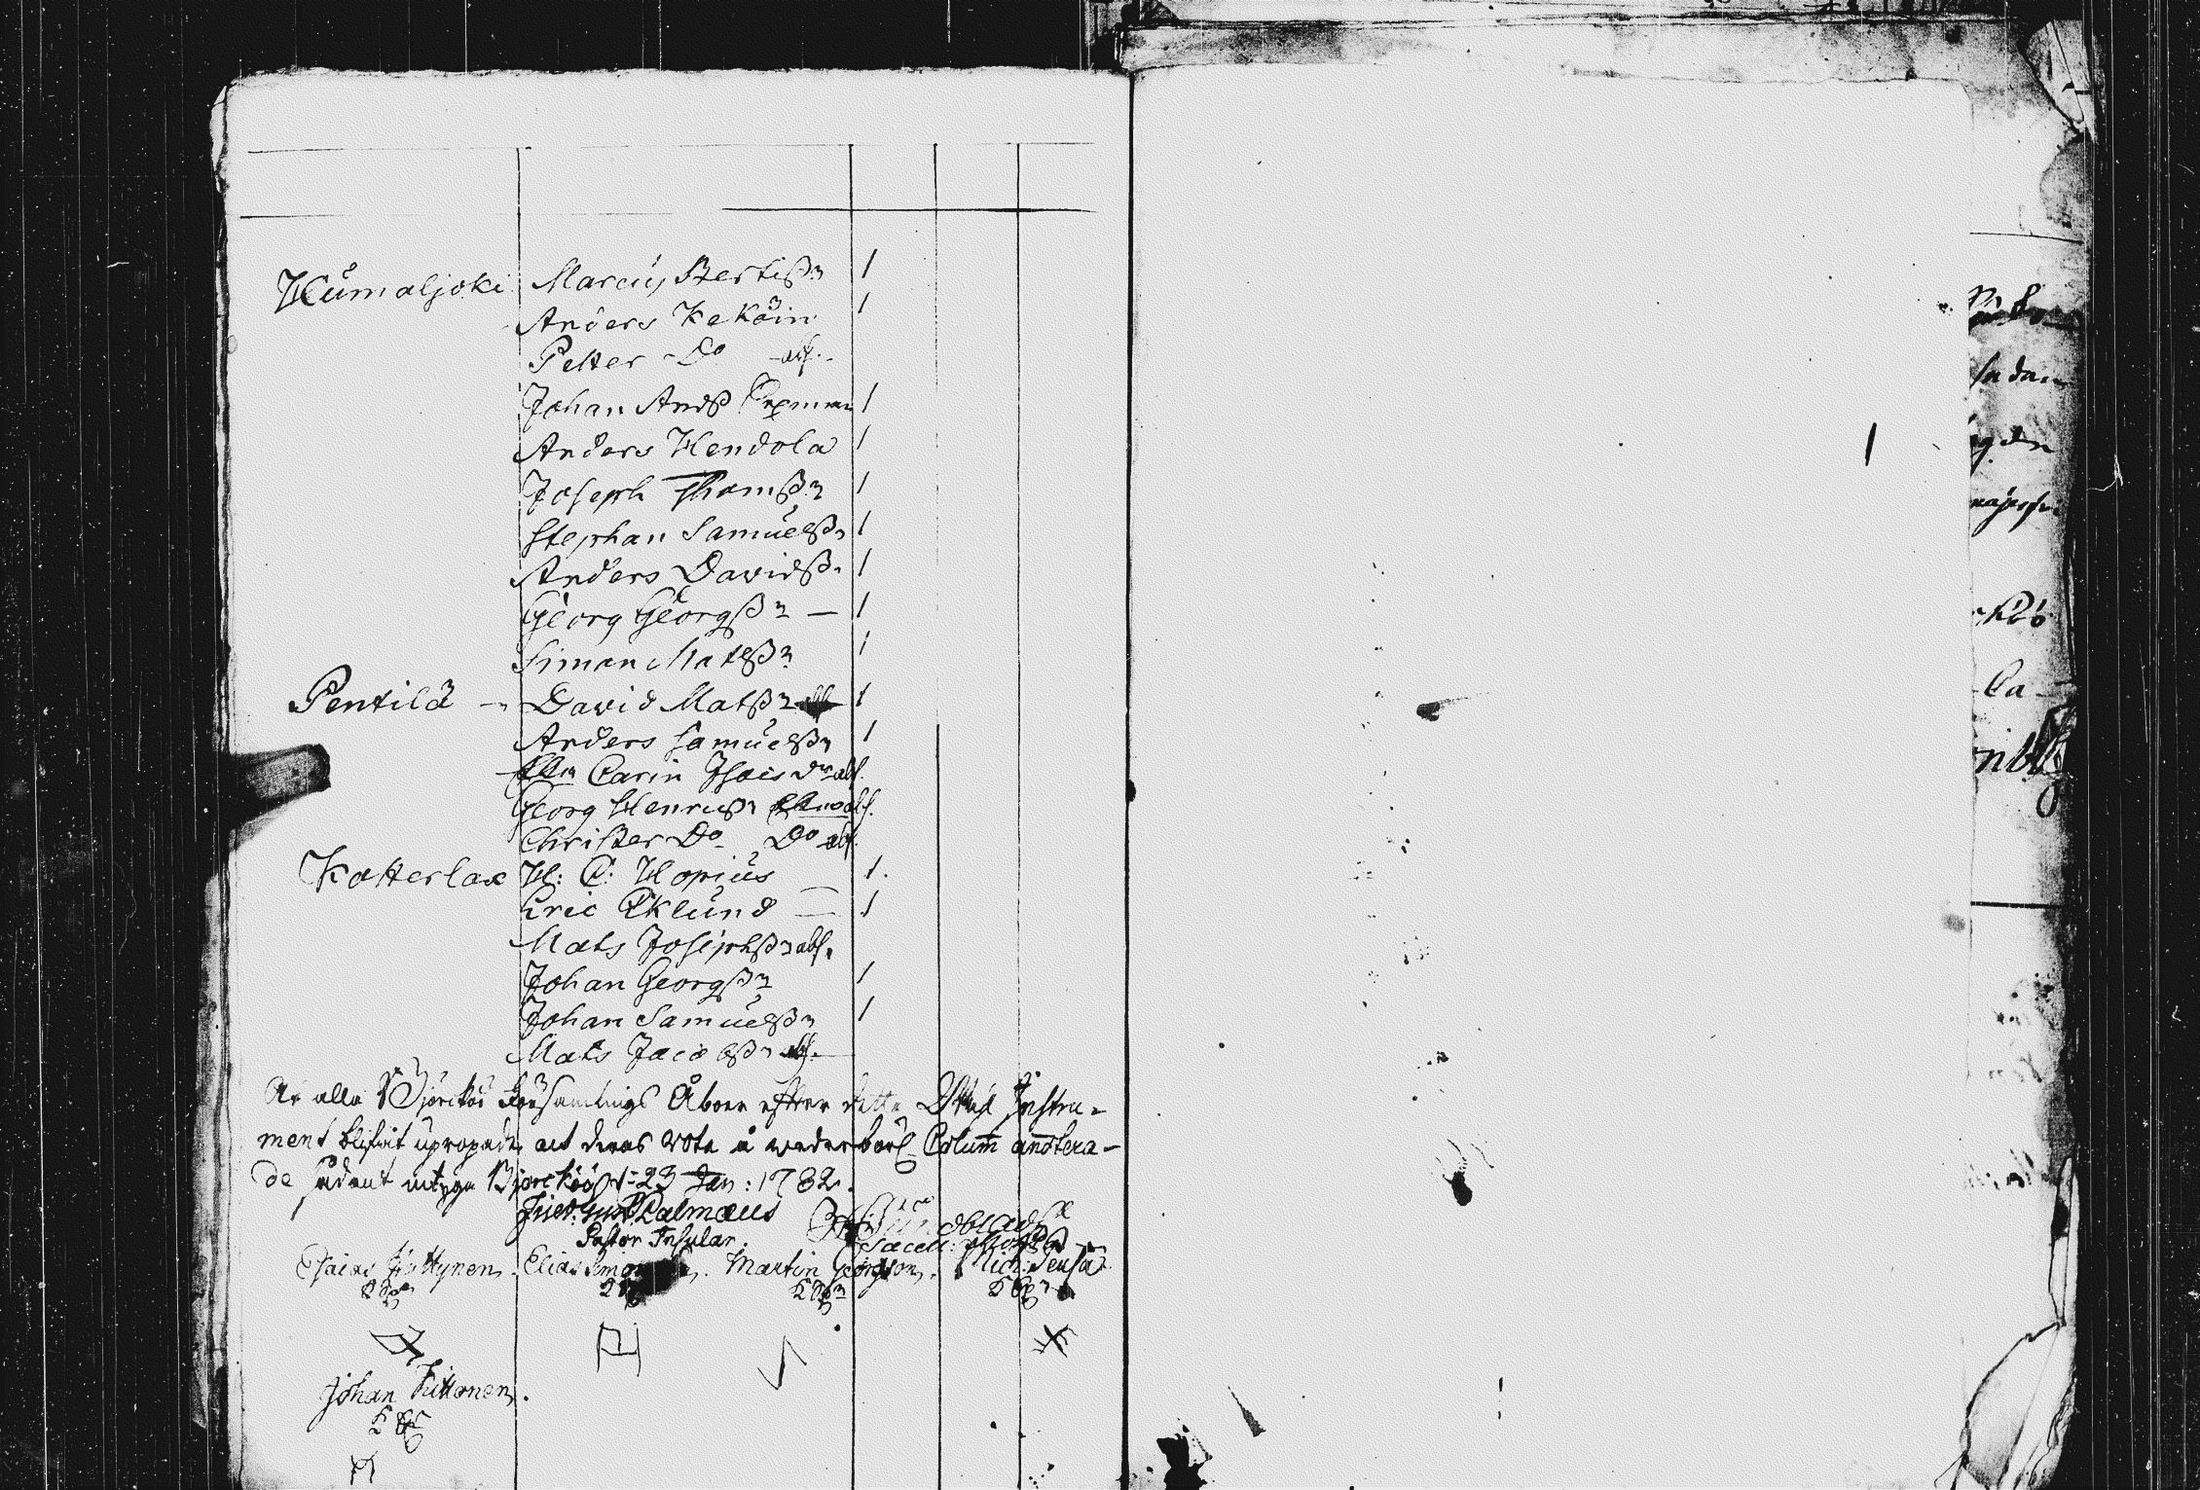 Humaljoki Marcus Bertisßn 1
Anders Kekäin 1
Petter Do abs.
Johan Andß 1
Anders Hendola 1
Joseph Thomßn 1
Stephan Samuelßn 1
Anders Davidßn 1
Georg Georgßn — 1
Simon Matsßn 1
Pentilä — David Matßn 1
Anders Samuelßn 1
Carin Isacs dr abs.
Georg Henricßn abs.
Christer Do Do abs.
Katterlax H: C: Hopius 1.
Eric Eklund — 1
Mats Josephßn abs.
Johan Georgßn 1
Johan Samuelßn 1
Mats Jacobßn abs.
At alla Björckö Församlings Åboer efter detta Instru-
ment blifvit upropade, att deras Vota å vederbörl. Column anotera-
de sådant intyga Björckö d: 23 Jan: 1782.
Palmæus
Pastor Insular.
Sacell:
Esaias Hyttynen. Elias Simon. Martin Georgson. Mich: Peusa
Johan Hittonen.
1